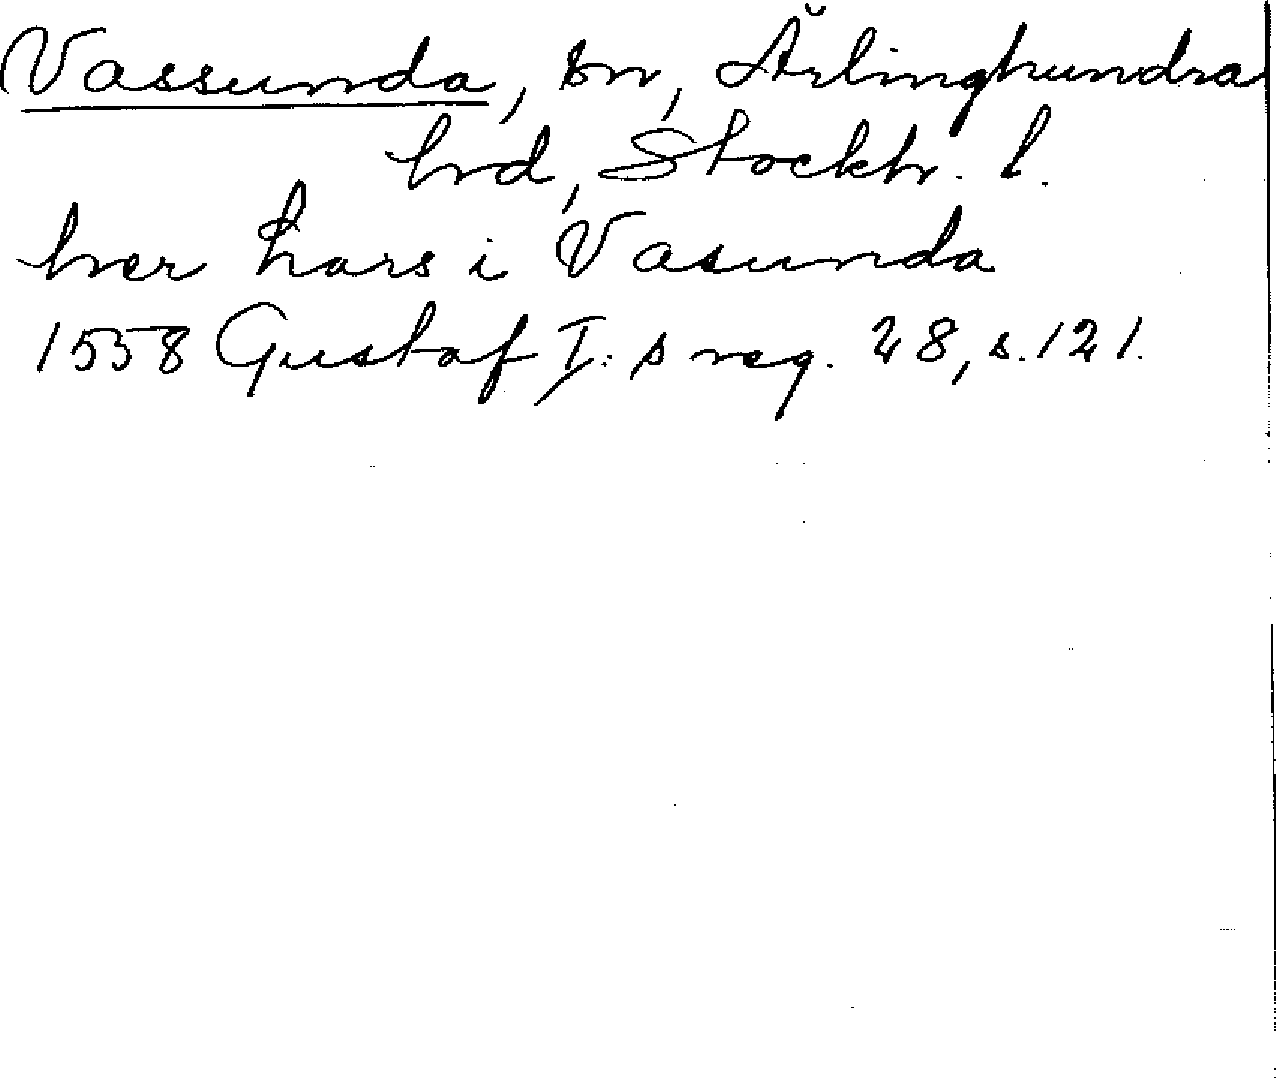 Vassunda, sn, Ärlinghundra
hrd, Stockh. l.
her Lars i Vasunda
1558 Gustaf I: s reg. 28, s. 121.